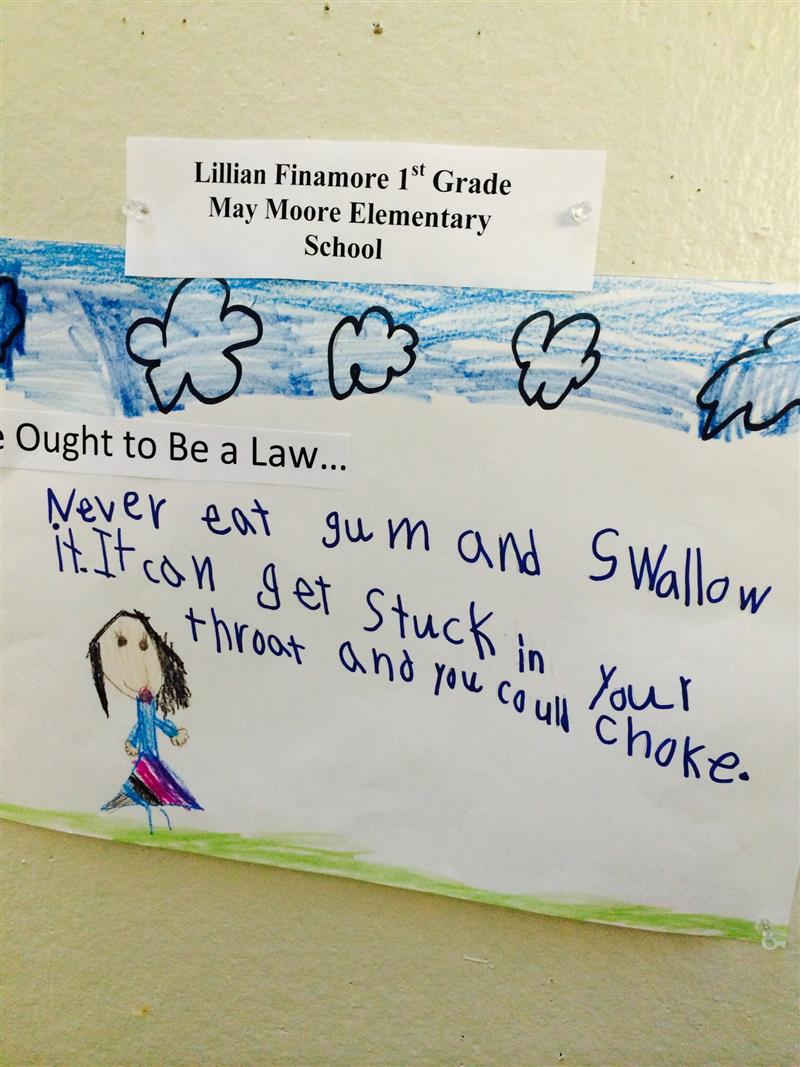 Lillian Finamore 1st Grade
May Moore Elementary
School
e Ought to Be a Law...
Never eat gum and swallow
it. It can get stuck in your
throat and you could choke.